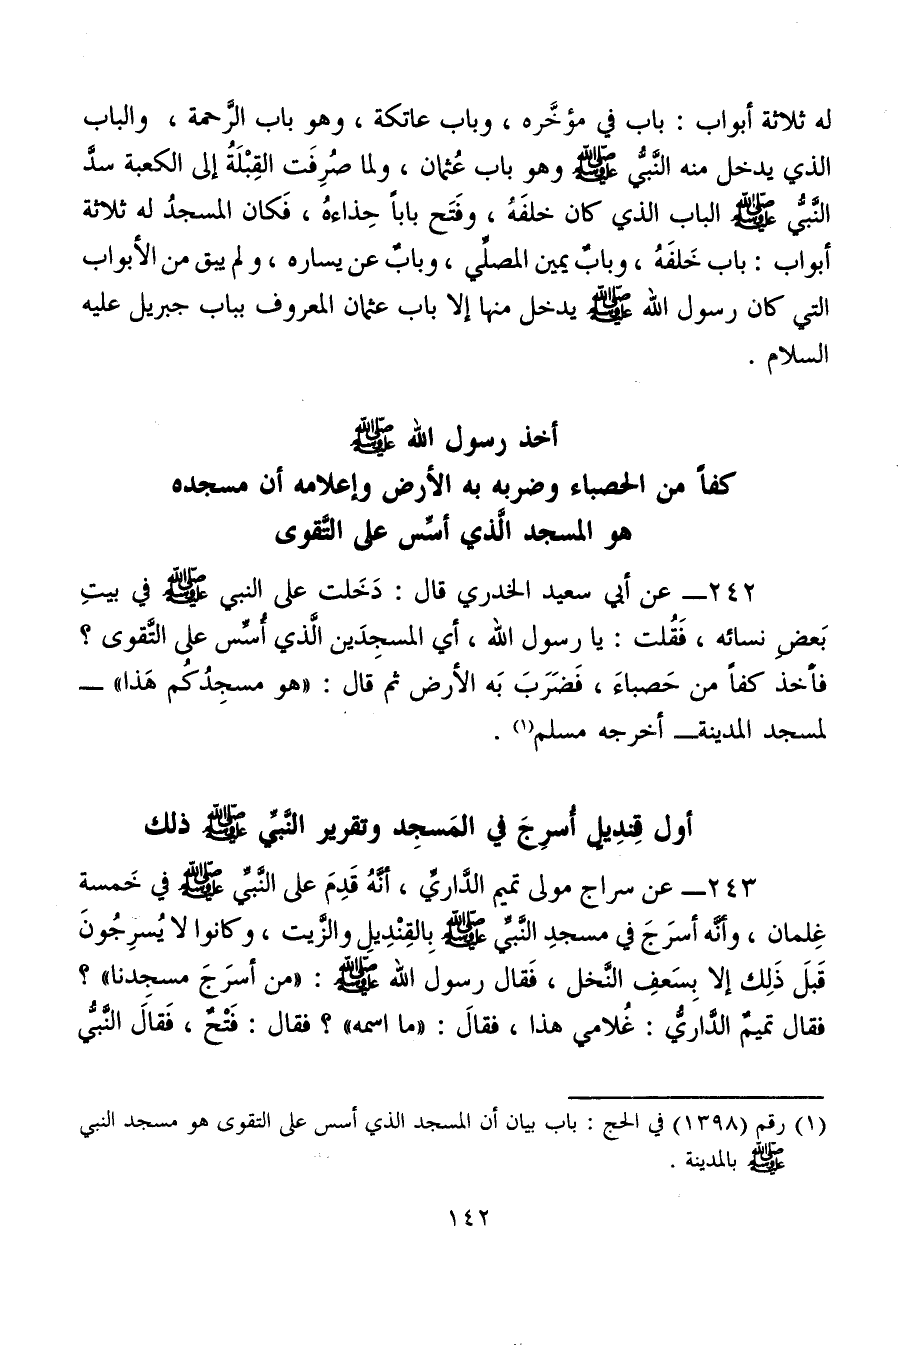 له ثلاثة أبواب : باب في مؤخَّره ، وباب عاتكة ، وهو باب الرَّحمة ، والباب
الذي يدخل منه النَّبيُّ ﷺ وهو باب عُثمان ، ولما صُرِفَت القِبْلَةُ إلى الكعبة سدَّ
النَّبيُّ ﷺ الباب الذي كان خلفَهُ ، وفتَح باباً حِذاءهُ ، فَكان المسجدُ له ثلاثة
أبواب : باب خَلفَهُ ، وبابٌ يمين المصلِّي ، وبابٌ عن يساره ، ولم يبق من الأبواب
التي كان رسول الله ﷺ يدخل منها إلا باب عثمان المعروف بباب جبريل عليه
السلام .
أخذ رسول الله ﷺ
كفاً من الحصباء وضربه به الأرض وإعلامه أن مسجده
هو المسجد الَّذي أسِّس على التَّقوى
٢٤٢ـ عن أبي سعيد الخدري قال : دَخَلت على النبي ﷺ في بيتِ
بَعضِ نسائه ، فَقُلت : يا رسول الله ، أي المسجِدَين الَّذي أُسِّس على التَّقوى ؟
فأخذ كفاً من حَصباءَ ، فَضَرَبَ بَه الأرض ثم قال : «هو مسجِدُكُم هَذا» ـ
لمسجد المدينة ـ أخرجه مسلم(١) .
أول قِندِيلٍ أُسرِجَ في المَسجِد وتقرير النَّبيِّ ﷺ ذلك
٢٤٣ـ عن سراج مولى تميم الدَّاريِّ ، أنَّهُ قَدِمَ على النَّبيِّ ﷺ في خَمسة
غِلمان ، وأنَّه أسرَجَ في مسجدِ النَّبيِّ ﷺ بِالقِنْدِيلِ والزَّيت ، وكانوا لا يُسرِجُونَ
قَبلَ ذَلِك إلا بِسَعَفِ النَّخل ، فَقال رسول الله ﷺ : «من أسرَجَ مسجِدنا» ؟
فقال تميمٌ الدَّاريُّ : غُلامي هذا ، فقالَ : «ما اسمه» ؟ فقال : فَتْحٌ ، فَقالَ النَّبيُّ
(١) رقم (١٣٩٨) في الحج : باب بيان أن المسجد الذي أسس على التقوى هو مسجد النبي
ﷺ بالمدينة .
١٤٢